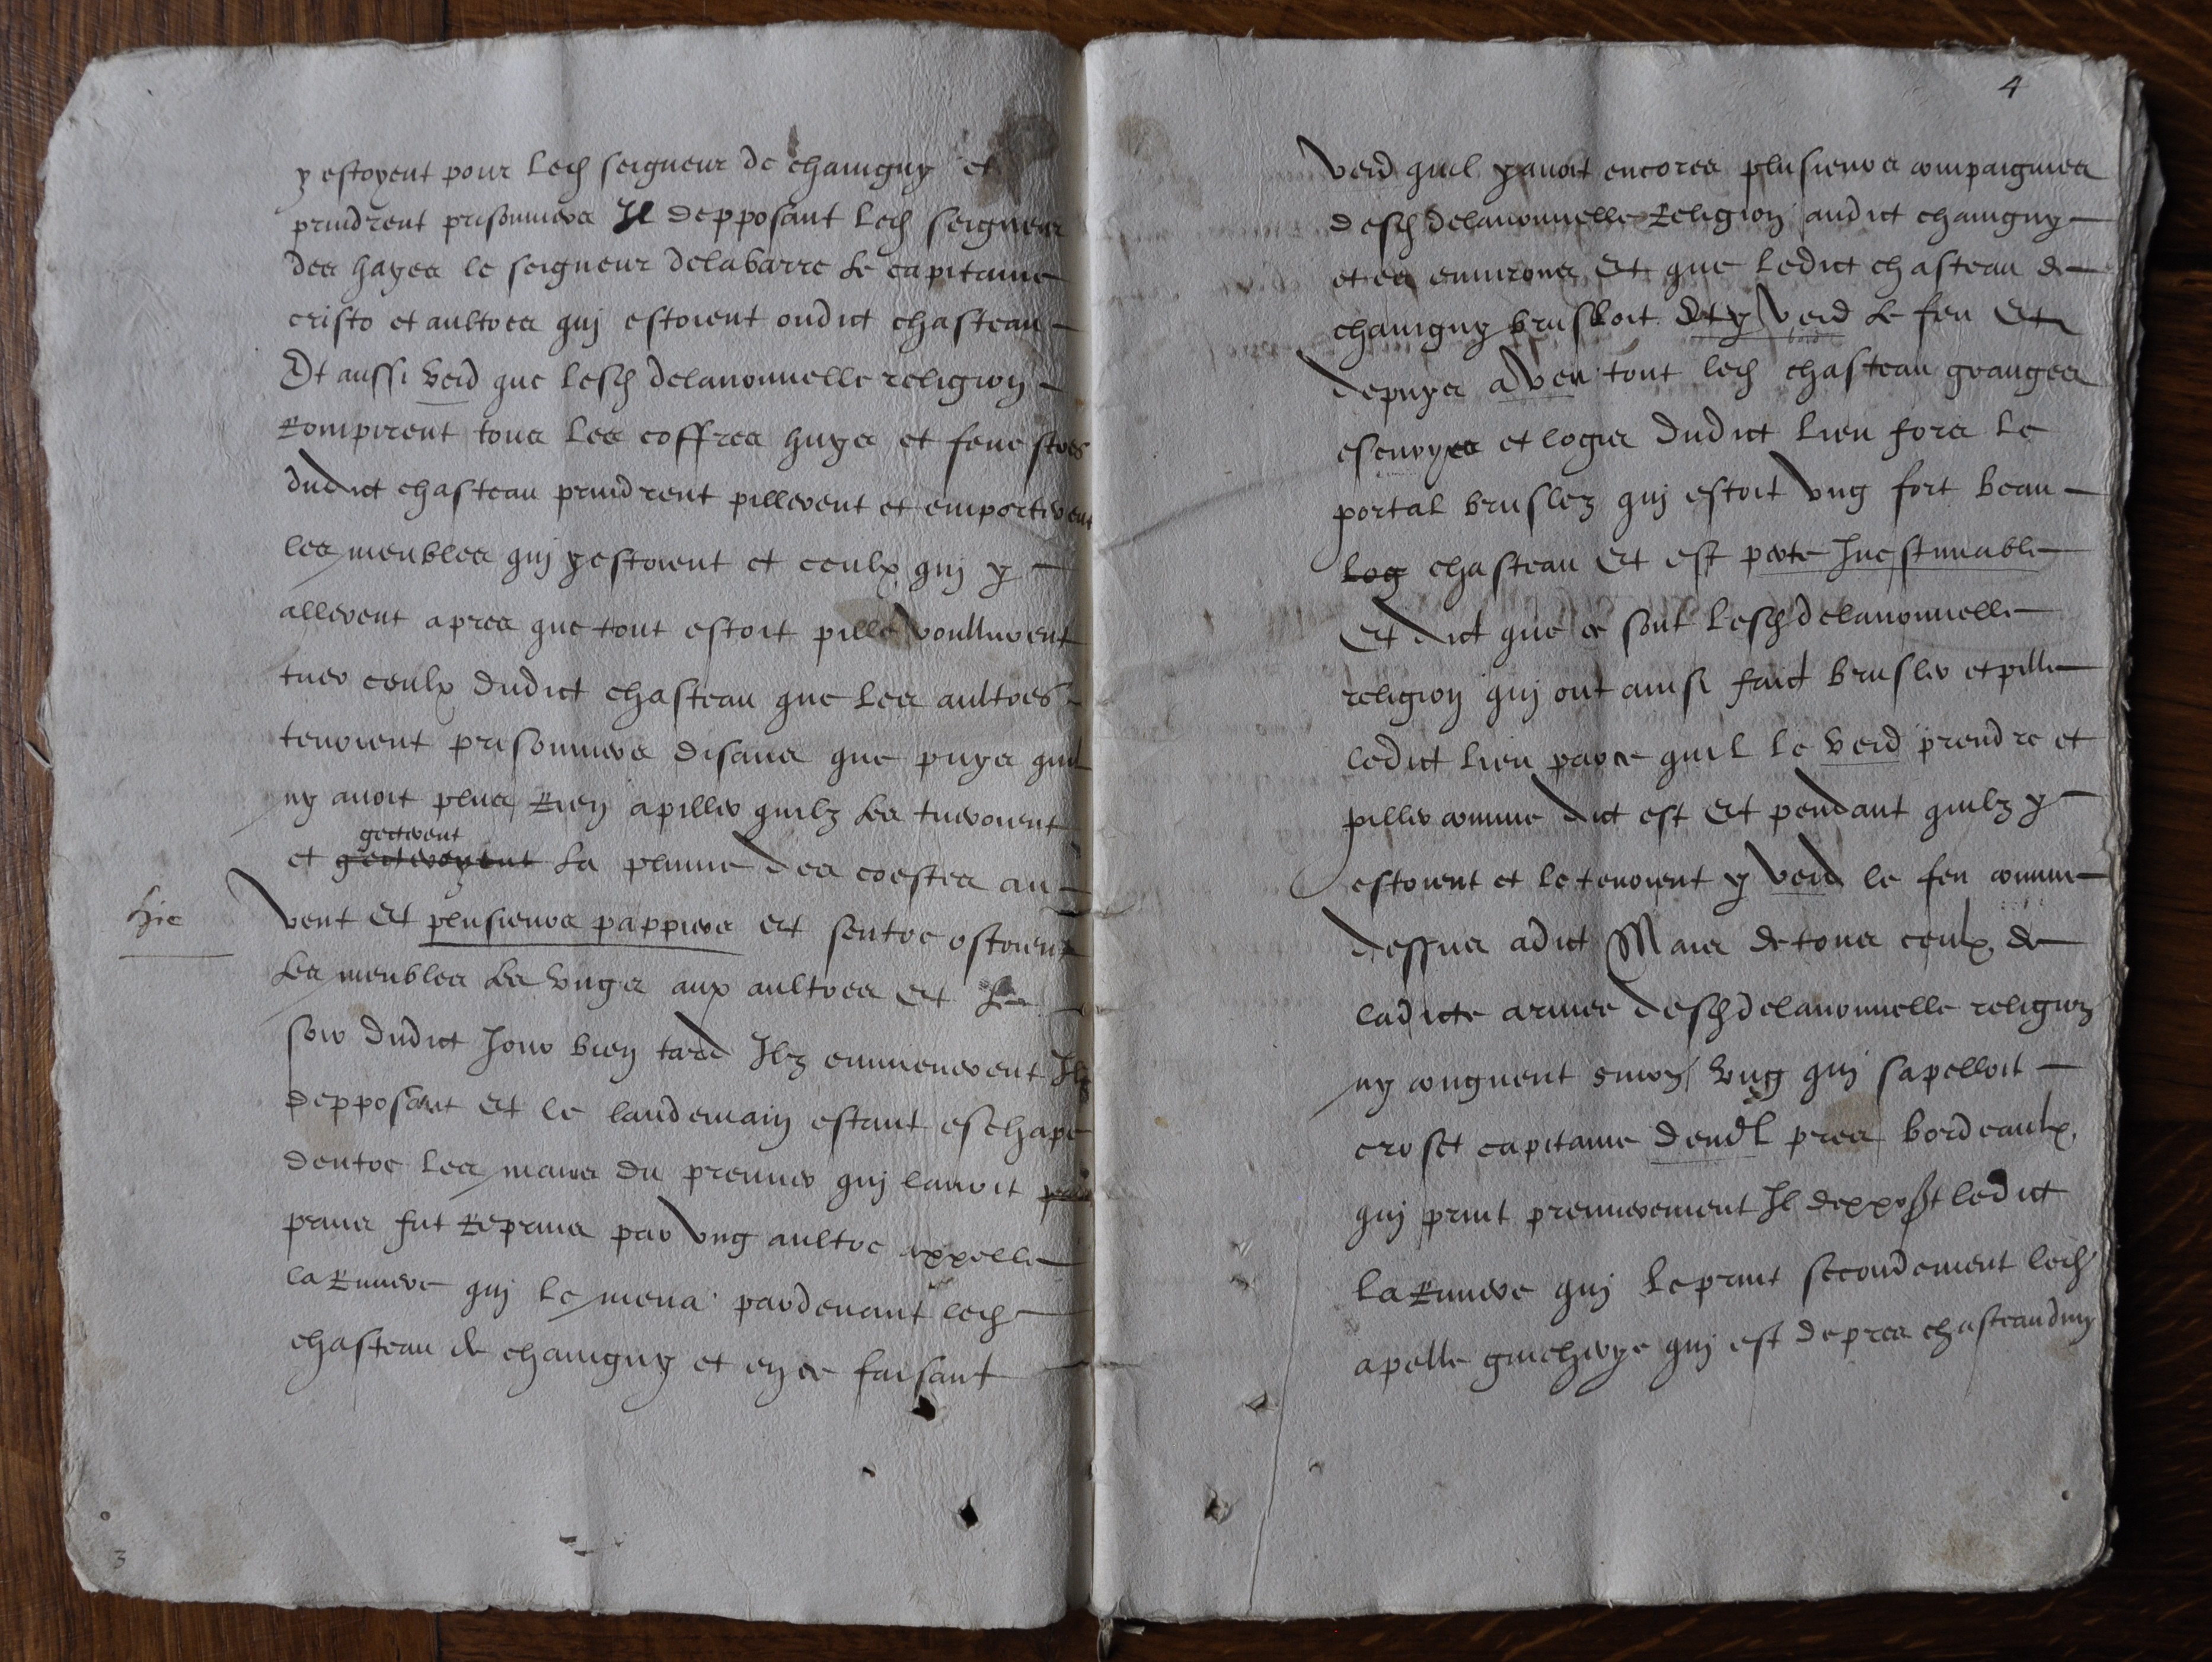 y estoyent pour led seigneur de chauigny et
prindrent prisonniers Il depposant led seigneur
des hayes le seigneur delabarre le capitaine
cristo et aultres qui estoient oudict chasteau
Et aussi veid que lesd delanouuelle religion
Rompirent tous les coffres huys et fenestres
dudict chasteau prindrent pillerent et emporterent
les meubles qui yestoient et ceulx qui y
allerent apres que tout estoit pillé voullurent
tuer ceulx dudict chasteau que les aultres
tenoient prisonniers disans que puys quil
ny auoit plus Rien apiller quilz les tueroient
gecterent
et gecteroyent la plume des coestes au
hic
vent et plusieurs pappiers et sentre ostoient
les meubles les vngs aux aultres et le
soir dudict Jour bien tard Ilz emmenerent Il
depposant et le landemain estant eschape
dentre les mains du premier qui lauoit
prins fut Reprins par vng aultre appelle
la Riuiere qui le mena pardeuant led
chasteau de chauigny et en ce faisant
3
4
veid quil yauoit encores plusieurs compaignies
desd delanouuelle Religion audict chauigny
et es enuirons et que ledict chasteau de
chauigny brusloit et y veid le feu et
depuys a veu tout led chasteau granges
escuryes et logis dudict lieu fors le
portal bruslez qui estoit vng fort beau
log chasteau et est perte Inestimable
et dict que ce sont lesd delanouuelle
religion qui ont ainsi faict brusler et piller
ledict lieu parce quil le veid prendre et
piller comme dict est et pendant quilz y
estoient et le tenoient y veid le feu comme
dessus adict Mais de tous ceulx de
ladicte armee desd delanouuelle religion
ny congneut sinon vng qui sapelloit
croset capitaine pres bordeaulx
qui print premierement Il deppost ledict
la Riuiere qui leprint secondement led
apelle qui est depres chasteaudun